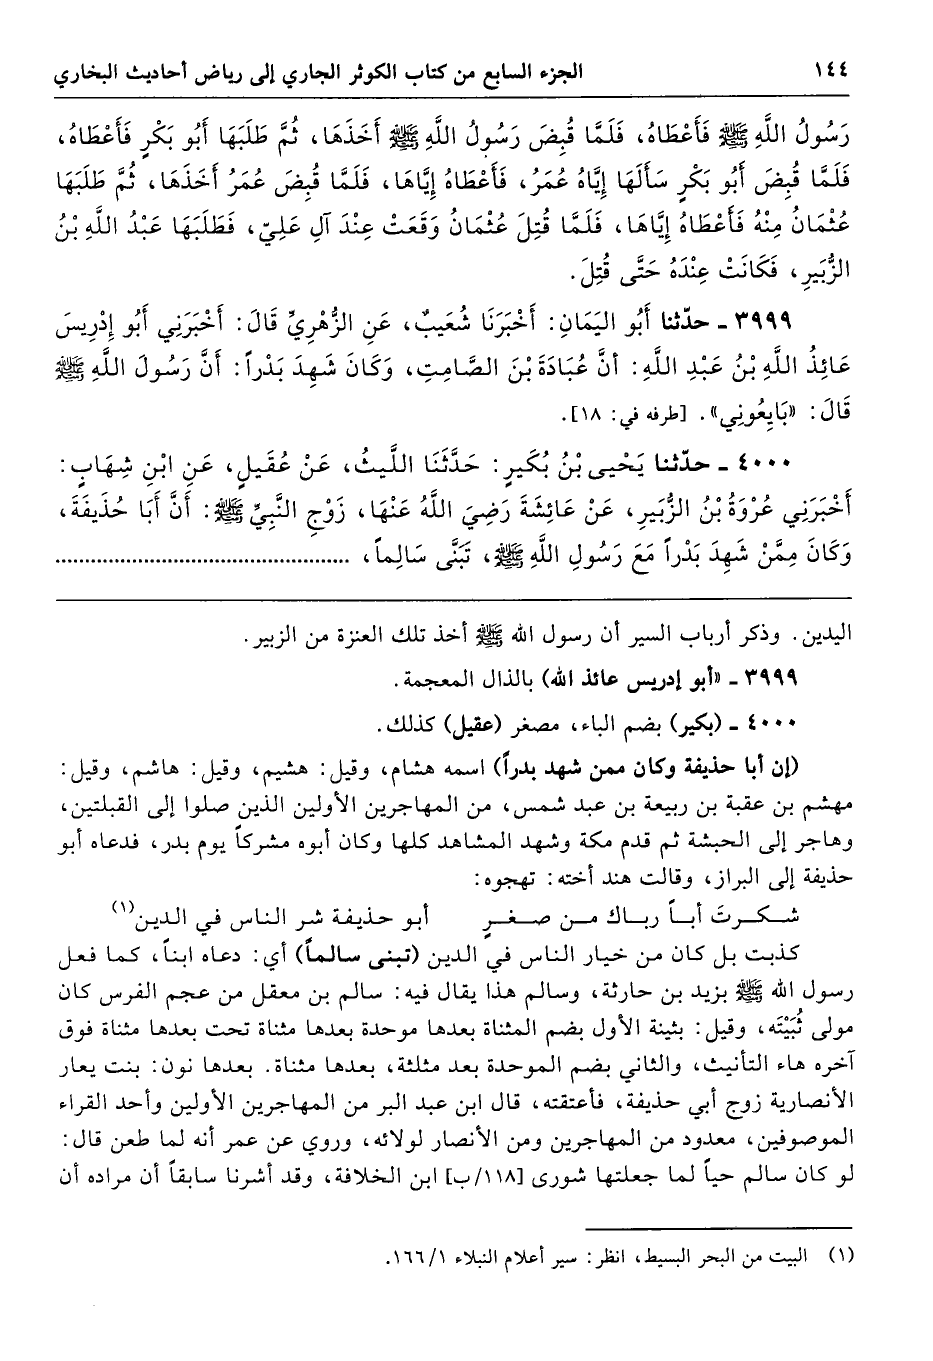 ١٤٤ الجزء السابع من كتاب الكوثر الجاري إلى رياض أحاديث البخاري
رَسُولُ اللَّهِ ﷺ فَأَعْطَاهُ، فَلَمَّا قُبِضَ رَسُولُ اللَّهِ ﷺ أَخَذَهَا، ثُمَّ طَلَبَهَا أَبُو بَكْرٍ فَأَعْطَاهُ،
فَلَمَّا قُبِضَ أَبُو بَكْرٍ سَأَلَهَا إِيَّاهُ عُمَرُ، فَأَعْطَاهُ إِيَّاهَا، فَلَمَّا قُبِضَ عُمَرُ أَخَذَهَا، ثُمَّ طَلَبَهَا
عُثْمَانُ مِنْهُ فَأَعْطَاهُ إِيَّاهَا، فَلَمَّا قُتِلَ عُثْمَانُ وَقَعَتْ عِنْدَ آلِ عَلِيّ، فَطَلَبَهَا عَبْدُ اللَّهِ بْنُ
الزُّبَيرِ، فَكَانَتْ عِنْدَهُ حَتَّى قُتِلَ.
٣٩٩٩ ـ حدّثنا أَبُو اليَمَانِ: أَخْبَرَنَا شُعَيبٌ، عَنِ الزُّهْرِيِّ قَالَ: أَخْبَرَنِي أَبُو إِدْرِيسَ
عَائِذُ اللَّهِ بْنُ عَبْدِ اللَّهِ: أَنَّ عُبَادَةَ بْنَ الصَّامِتِ، وَكَانَ شَهِدَ بَدْراً: أَنَّ رَسُولَ اللَّهِ ﷺ
قَالَ: «بَايِعُونِي». [طرفه في: ١٨].
٤٠٠٠ ـ حدّثنا يَحْيى بْنُ بُكَيرٍ: حَدَّثَنَا اللَّيثُ، عَنْ عُقَيلٍ، عَنِ ابْنِ شِهَابٍ:
أَخْبَرَنِي عُرْوَةُ بْنُ الزُّبَيرِ، عَنْ عَائِشَةَ رَضِيَ اللَّهُ عَنْهَا، زَوْجِ النَّبِيِّ ﷺ: أَنَّ أَبَا حُذَيفَةَ،
وَكَانَ مِمَّنْ شَهِدَ بَدْراً مَعَ رَسُولِ اللَّهِ ﷺ، تَبَنَّى سَالِماً، ................................................
اليدين. وذكر أرباب السير أن رسول الله ﷺ أخذ تلك العنزة من الزبير.
٣٩٩٩ ـ «أبو إدريس عائذ الله) بالذال المعجمة.
٤٠٠٠ ـ (بكير) بضم الباء، مصغر (عقيل) كذلك.
(إن أبا حذيفة وكان ممن شهد بدراً) اسمه هشام، وقيل: هشيم، وقيل: هاشم، وقيل:
مهشم بن عقبة بن ربيعة بن عبد شمس، من المهاجرين الأولين الذين صلوا إلى القبلتين،
وهاجر إلى الحبشة ثم قدم مكة وشهد المشاهد كلها وكان أبوه مشركاً يوم بدر، فدعاه أبو
حذيفة إلى البراز، وقالت هند أخته: تهجوه:
شكرتَ أباً رباك من صغرٍ أبو حذيفة شر الناس في الدين(١)
كذبت بل كان من خيار الناس في الدين (تبنى سالماً) أي: دعاه ابناً، كما فعل
رسول الله ﷺ بزيد بن حارثة، وسالم هذا يقال فيه: سالم بن معقل من عجم الفرس كان
مولى ثُبَيْتَه، وقيل: بثينة الأول بضم المثناة بعدها موحدة بعدها مثناة تحت بعدها مثناة فوق
آخره هاء التأنيث، والثاني بضم الموحدة بعد مثلثة، بعدها مثناة. بعدها نون: بنت يعار
الأنصارية زوج أبي حذيفة، فأعتقته، قال ابن عبد البر من المهاجرين الأولين وأحد القراء
الموصوفين، معدود من المهاجرين ومن الأنصار لولائه، وروي عن عمر أنه لما طعن قال:
لو كان سالم حياً لما جعلتها شورى [١١٨/ب] ابن الخلافة، وقد أشرنا سابقاً أن مراده أن
(١) البيت من البحر البسيط، انظر: سير أعلام النبلاء ١٦٦/١.